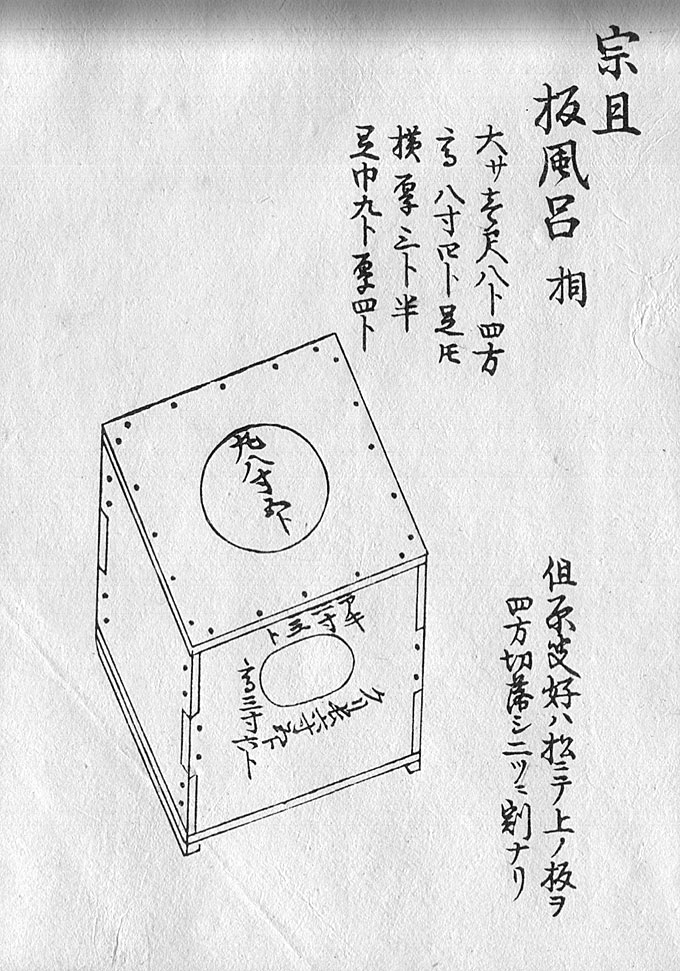 宗旦
板風呂 桐
大サ壱尺八ト四方
高八寸四ト足トモ
横厚三ト半
足巾九ト厚四ト
穴八寸五ト
アキ
一寸三ト
高三寸六ト
但原叟好ハ松ニテ上ノ板ヲ
四方切落シ二ツニ割ナリ